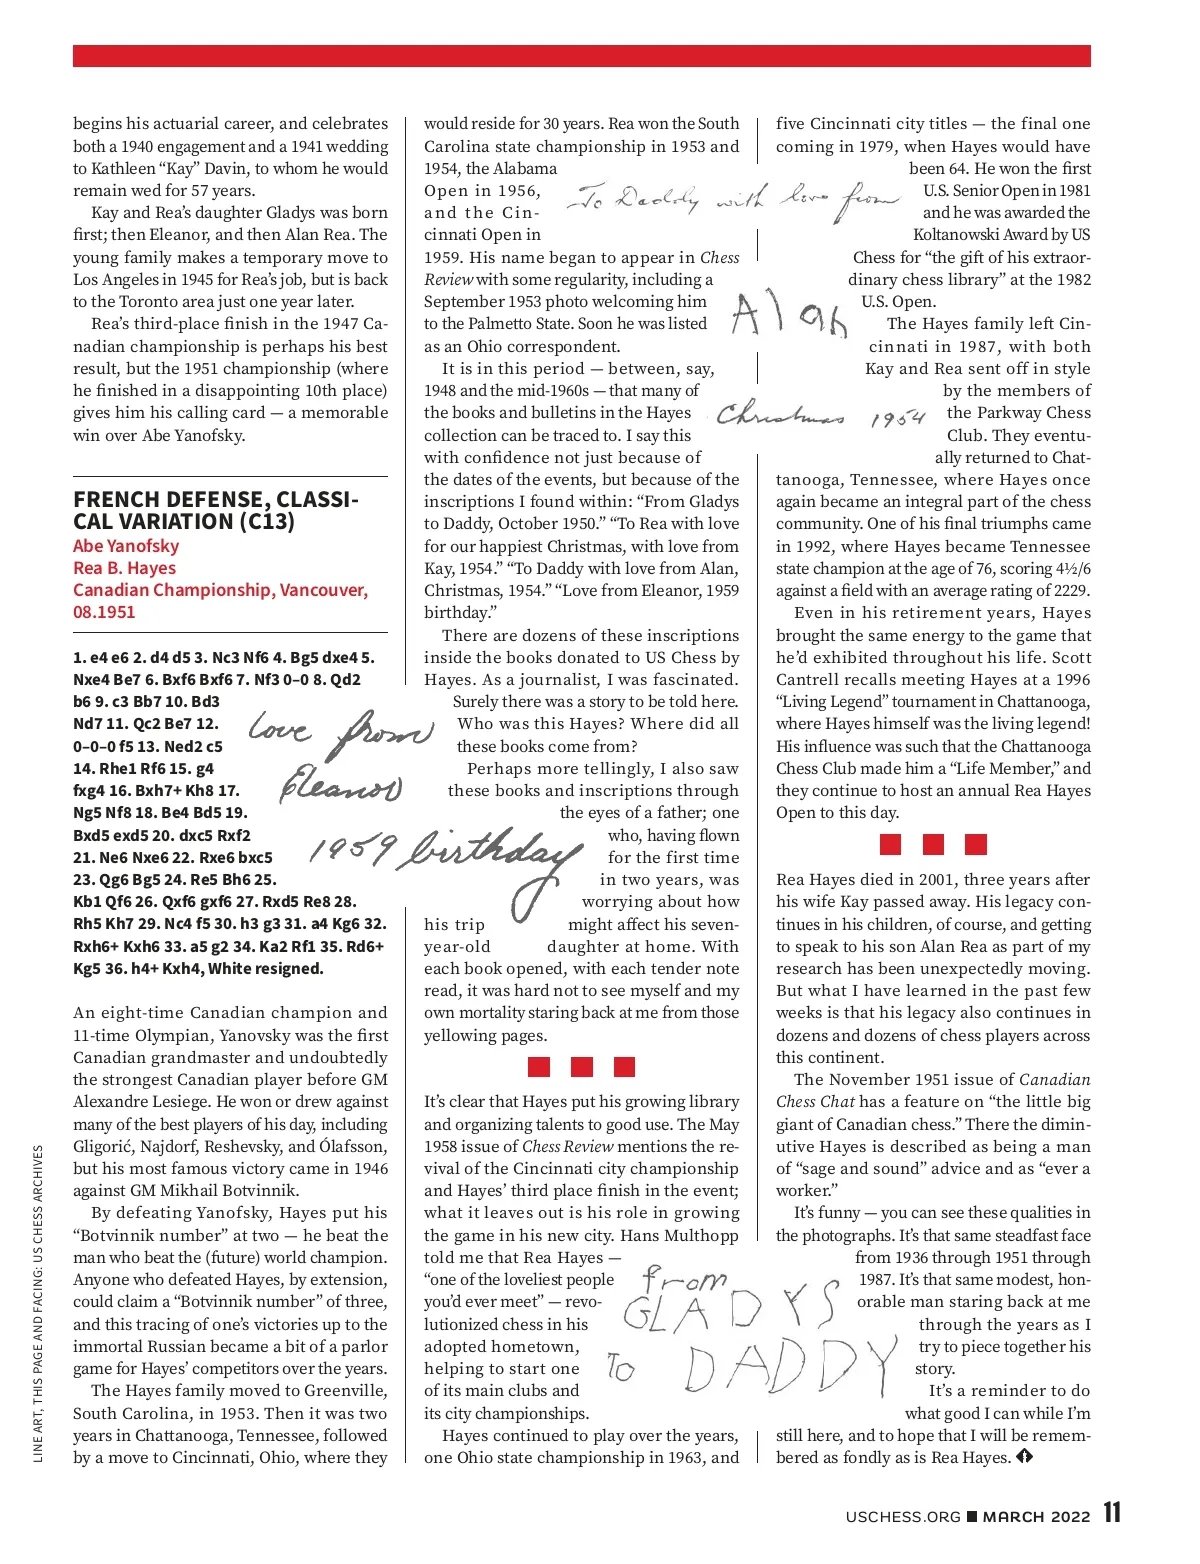 begins his actuarial career, and celebrates
both a 1940 engagement and a 1941 wedding
to Kathleen “Kay” Davin, to whom he would
remain wed for 57 years.
Kay and Rea’s daughter Gladys was born
first; then Eleanor, and then Alan Rea. The
young family makes a temporary move to
Los Angeles in 1945 for Rea’s job, but is back
to the Toronto area just one year later.
Rea’s third-place finish in the 1947 Ca-
nadian championship is perhaps his best
result, but the 1951 championship (where
he finished in a disappointing 10th place)
gives him his calling card — a memorable
win over Abe Yanofsky.
FRENCH DEFENSE, CLASSI-
CAL VARIATION (C13)
Abe Yanofsky
Rea B. Hayes
Canadian Championship, Vancouver,
08.1951
1. e4 e6 2. d4 d5 3. Nc3 Nf6 4. Bg5 dxe4 5.
Nxe4 Be7 6. Bxf6 Bxf6 7. Nf3 0–0 8. Qd2
b6 9. c3 Bb7 10. Bd3
Nd7 11. Qc2 Be7 12.
0–0–0 f5 13. Ned2 c5
14. Rhe1 Rf6 15. g4
fxg4 16. Bxh7+ Kh8 17.
Ng5 Nf8 18. Be4 Bd5 19.
Bxd5 exd5 20. dxc5 Rxf2
21. Ne6 Nxe6 22. Rxe6 bxc5
23. Qg6 Bg5 24. Re5 Bh6 25.
Kb1 Qf6 26. Qxf6 gxf6 27. Rxd5 Re8 28.
Rh5 Kh7 29. Nc4 f5 30. h3 g3 31. a4 Kg6 32.
Rxh6+ Kxh6 33. a5 g2 34. Ka2 Rf1 35. Rd6+
Kg5 36. h4+ Kxh4, White resigned.
An eight-time Canadian champion and
11-time Olympian, Yanovsky was the first
Canadian grandmaster and undoubtedly
the strongest Canadian player before GM
Alexandre Lesiege. He won or drew against
many of the best players of his day, including
Gligorić, Najdorf, Reshevsky, and Ólafsson,
but his most famous victory came in 1946
against GM Mikhail Botvinnik.
By defeating Yanofsky, Hayes put his
“Botvinnik number” at two — he beat the
man who beat the (future) world champion.
Anyone who defeated Hayes, by extension,
could claim a “Botvinnik number” of three,
and this tracing of one’s victories up to the
immortal Russian became a bit of a parlor
game for Hayes’ competitors over the years.
The Hayes family moved to Greenville,
South Carolina, in 1953. Then it was two
years in Chattanooga, Tennessee, followed
by a move to Cincinnati, Ohio, where they
Love from
Eleanor
1959 birthday
would reside for 30 years. Rea won the South
Carolina state championship in 1953 and
1954, the Alabama
Open in 1956,
and the Cin-
cinnati Open in
1959. His name began to appear in Chess
Review with some regularity, including a
September 1953 photo welcoming him
to the Palmetto State. Soon he was listed
as an Ohio correspondent.
It is in this period — between, say,
1948 and the mid-1960s — that many of
the books and bulletins in the Hayes
collection can be traced to. I say this
with confidence not just because of
the dates of the events, but because of the
inscriptions I found within: “From Gladys
to Daddy, October 1950.” “To Rea with love
for our happiest Christmas, with love from
Kay, 1954.” “To Daddy with love from Alan,
Christmas, 1954.” “Love from Eleanor, 1959
birthday.”
There are dozens of these inscriptions
inside the books donated to US Chess by
Hayes. As a journalist, I was fascinated.
Surely there was a story to be told here.
Who was this Hayes? Where did all
these books come from?
Perhaps more tellingly, I also saw
these books and inscriptions through
the eyes of a father; one
who, having flown
for the first time
in two years, was
worrying about how
his trip might affect his seven-
year-old daughter at home. With
each book opened, with each tender note
read, it was hard not to see myself and my
own mortality staring back at me from those
yellowing pages.
It’s clear that Hayes put his growing library
and organizing talents to good use. The May
1958 issue of Chess Review mentions the re-
vival of the Cincinnati city championship
and Hayes’ third place finish in the event;
what it leaves out is his role in growing
the game in his new city. Hans Multhopp
told me that Rea Hayes —
“one of the loveliest people
you’d ever meet” — revo-
lutionized chess in his
adopted hometown,
helping to start one
of its main clubs and
its city championships.
Hayes continued to play over the years,
one Ohio state championship in 1963, and
To Daddy with love from
Alan
Christmas 1954
from
GLADYS
To DADDY
five Cincinnati city titles — the final one
coming in 1979, when Hayes would have
been 64. He won the first
U.S. Senior Open in 1981
and he was awarded the
Koltanowski Award by US
Chess for “the gift of his extraor-
dinary chess library” at the 1982
U.S. Open.
The Hayes family left Cin-
cinnati in 1987, with both
Kay and Rea sent off in style
by the members of
the Parkway Chess
Club. They eventu-
ally returned to Chat-
tanooga, Tennessee, where Hayes once
again became an integral part of the chess
community. One of his final triumphs came
in 1992, where Hayes became Tennessee
state champion at the age of 76, scoring 4½/6
against a field with an average rating of 2229.
Even in his retirement years, Hayes
brought the same energy to the game that
he’d exhibited throughout his life. Scott
Cantrell recalls meeting Hayes at a 1996
“Living Legend” tournament in Chattanooga,
where Hayes himself was the living legend!
His influence was such that the Chattanooga
Chess Club made him a “Life Member,” and
they continue to host an annual Rea Hayes
Open to this day.
Rea Hayes died in 2001, three years after
his wife Kay passed away. His legacy con-
tinues in his children, of course, and getting
to speak to his son Alan Rea as part of my
research has been unexpectedly moving.
But what I have learned in the past few
weeks is that his legacy also continues in
dozens and dozens of chess players across
this continent.
The November 1951 issue of Canadian
Chess Chat has a feature on “the little big
giant of Canadian chess.” There the dimin-
utive Hayes is described as being a man
of “sage and sound” advice and as “ever a
worker.”
It’s funny — you can see these qualities in
the photographs. It’s that same steadfast face
from 1936 through 1951 through
1987. It’s that same modest, hon-
orable man staring back at me
through the years as I
try to piece together his
story.
It’s a reminder to do
what good I can while I’m
still here, and to hope that I will be remem-
bered as fondly as is Rea Hayes.
LINE ART, THIS PAGE AND FACING: US CHESS ARCHIVES
USCHESS.ORG ■ MARCH 2022 11